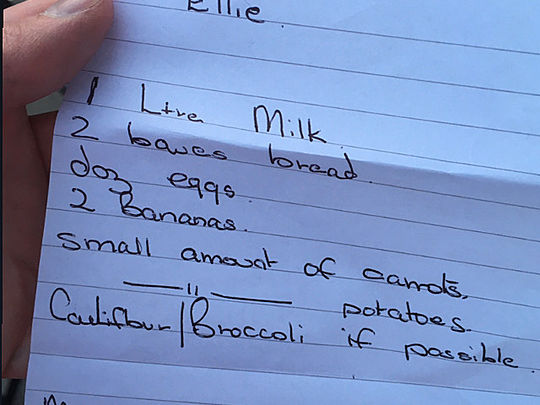 Ellie.
1 Litre Milk.
2 loaves bread.
doz eggs.
2 Bananas.
small amount of carrots.
—— " —— potatoes.
Cauliflour/Broccoli if possible.